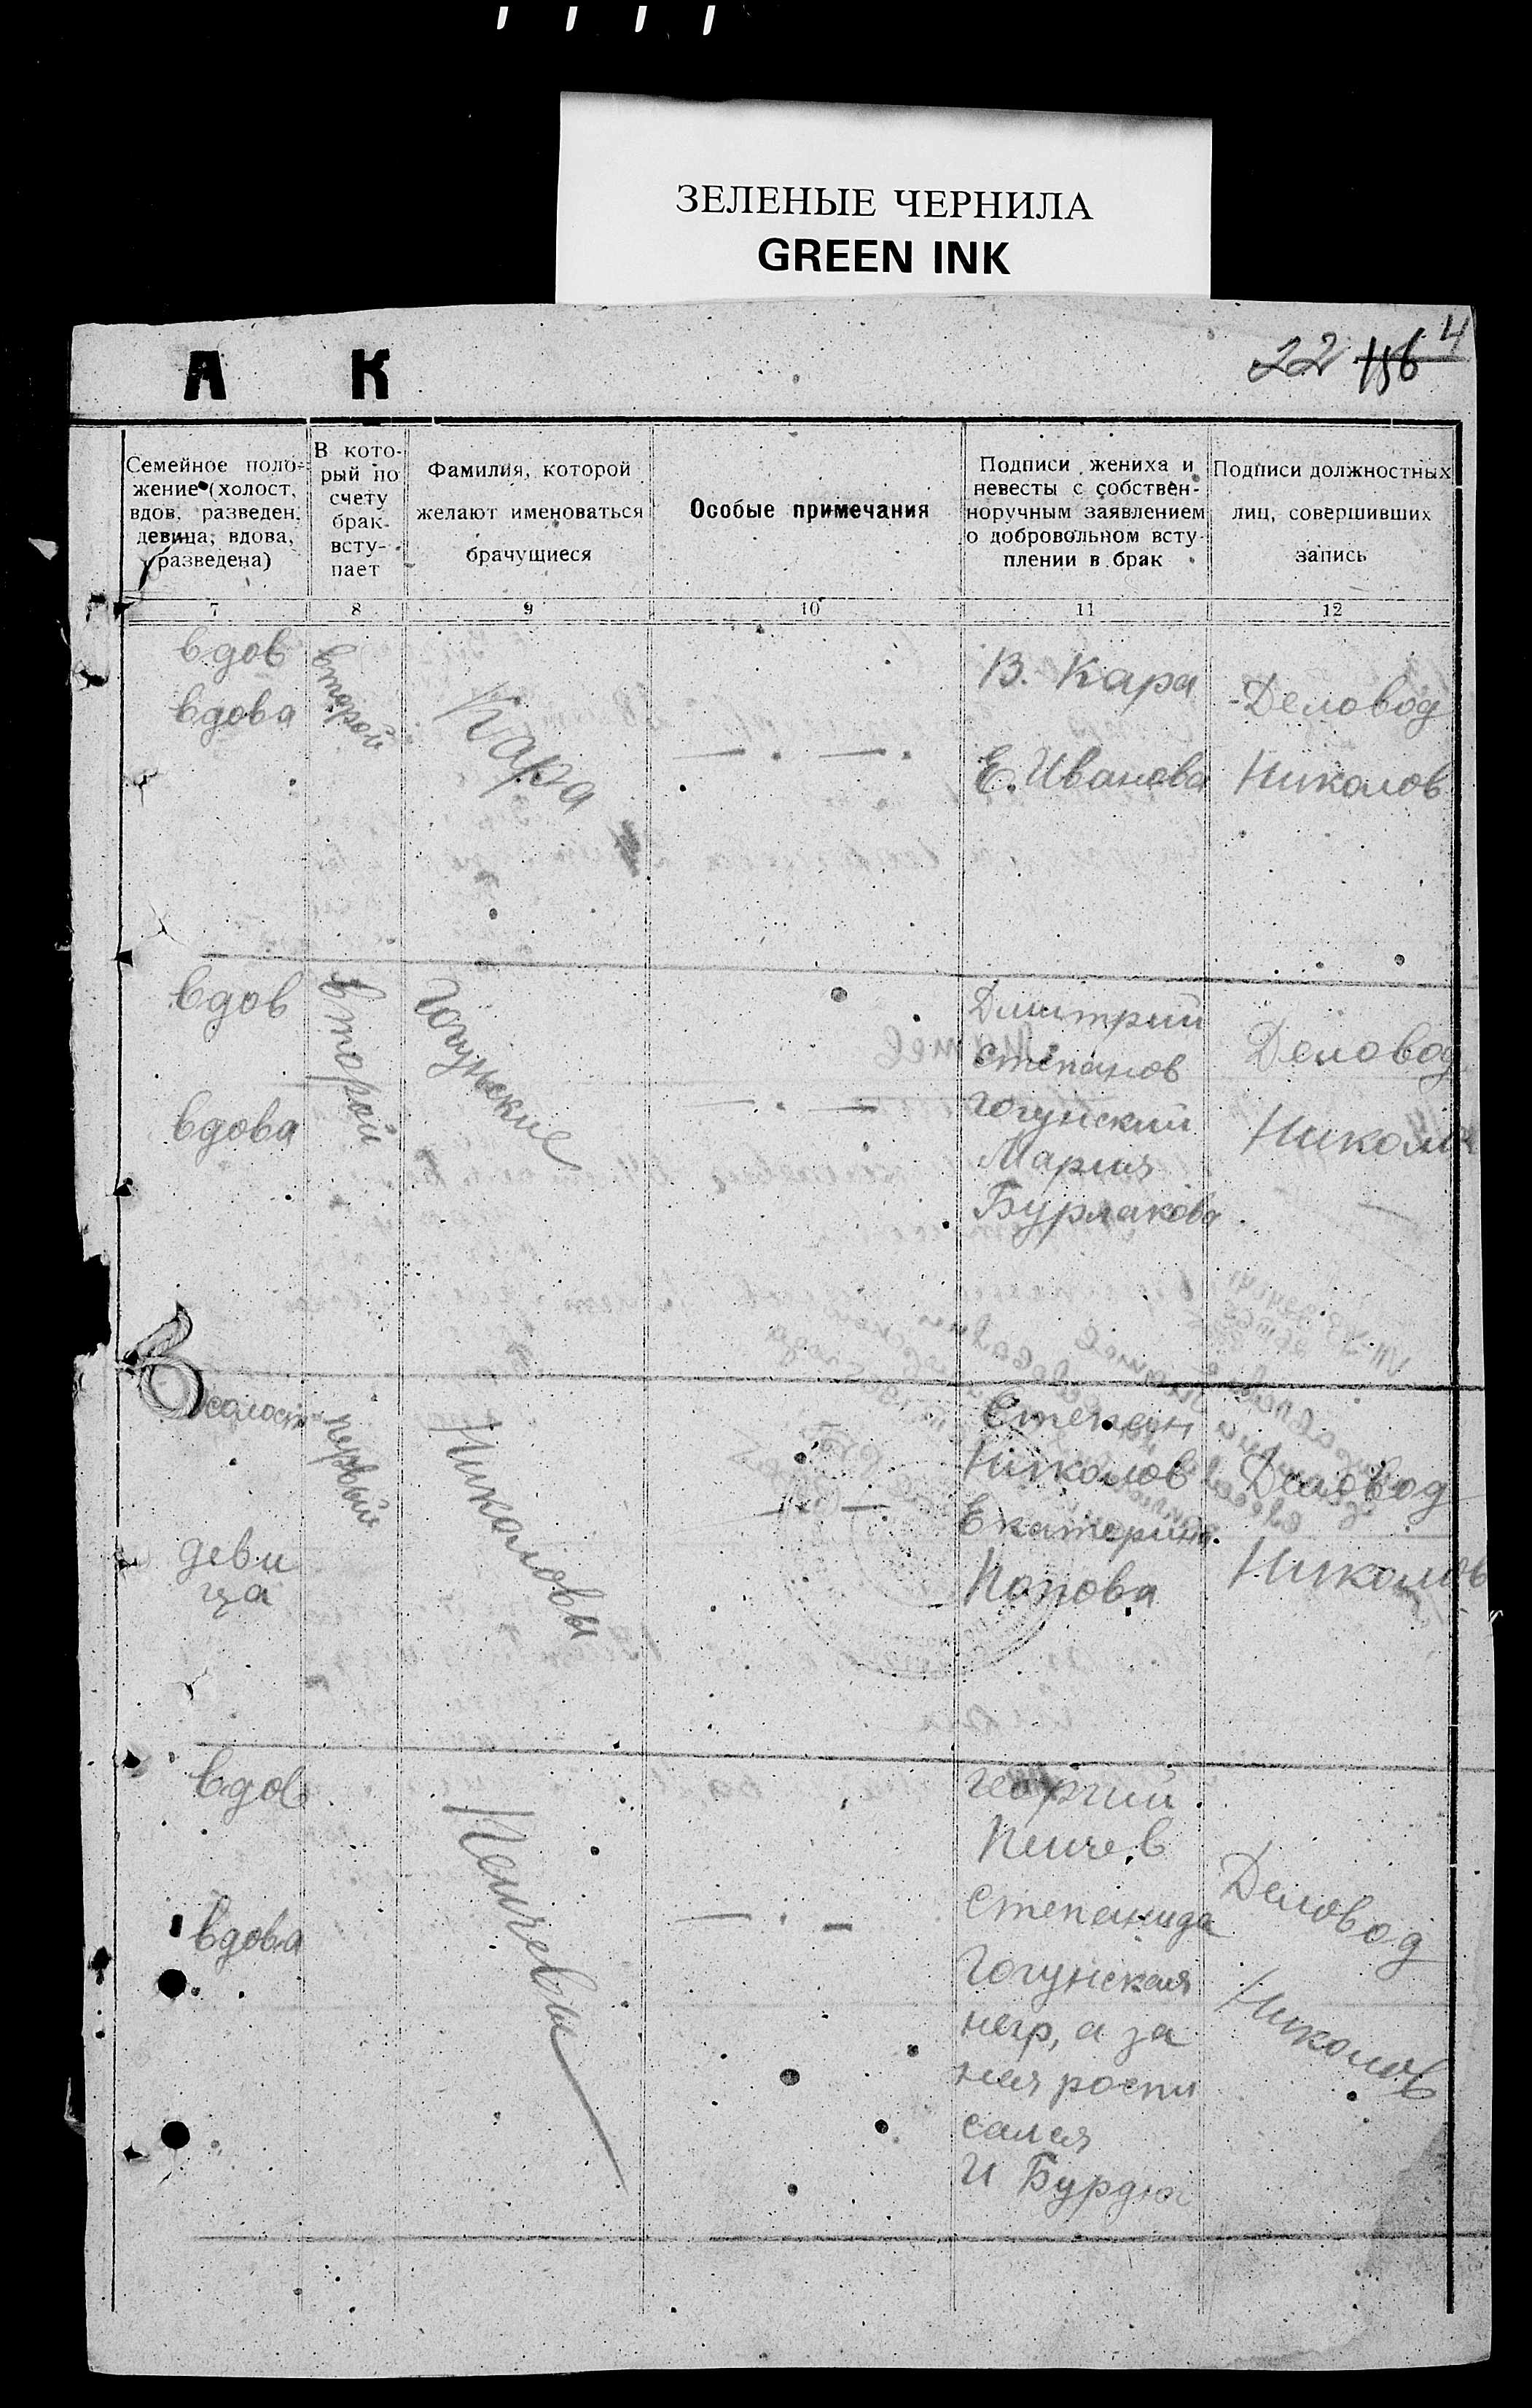 ЗЕЛЕНЫЕ ЧЕРНИЛА
GREEN INK
А К
22 156 4
Семейное поло-
жение (холост,
вдов, разведен,
девица, вдова,
разведена)
В кото-
рый по
счету
брак
всту-
пает
Фамилия, которой
желают именоваться
брачущиеся
Особые примечания
Подписи жениха и
невесты с собствен-
норучным заявлением
о добровольном всту-
плении в брак
Подписи должностных
лиц, совершивших
запись
7 8 9 10 11 12
вдов
вдова
второй
Кара
— . — .
В. Кара
Е. Иванова
Деловод
Николов
вдов
вдова
второй
Гогунские
— . —
Дмитрий
Степанов
Гогунский
Мария
Бурлакова
Деловод
Николов
холост
деви
ца
первый
Николовы
Степан
Николов
Екатерина
Попова
Деловод
Николов
вдов
вдова
Пейчевы
— . —
Георгий
Пейчев
Степанида
Гогунская
негр, а за
нея роспи
сался
И Бурдюг
Деловод
Николов